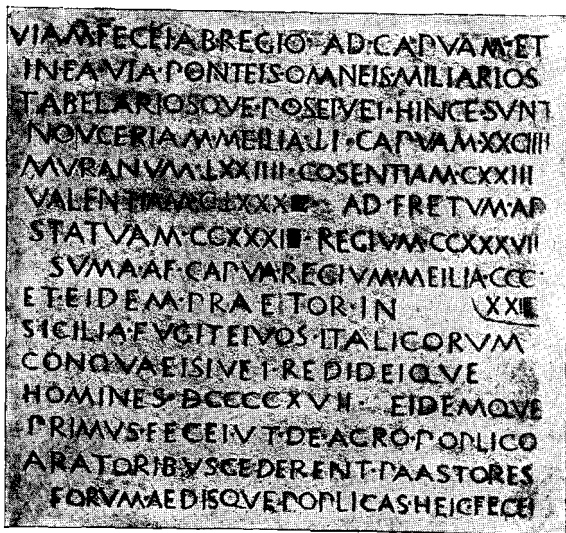 VIAM·FECEI·AB·REGIO·AD·CAPVAM·ET
IN·EA·VIA·PONTEIS·OMNEIS·MILIARIOS
TABELARIOSQVE·POSEIVEI·HINCE·SVNT
NOVCERIAM·MEILIA·LI·CAPVAM·XXCIIII
MVRANVM·LXXIIII·COSENTIAM·CXXIII
VALENTIAM· AD·FRETVM·AD
STATVAM· REGIVM·CCXXXVII
SVMA·AF·CAPVA·REGIVM·MEILIA·CCC
ET·EIDEM·PRAEITOR·IN
SICILIA·FVGITEIVOS·ITALICORVM
CONQVAEISIVEI·REDIDEIQVE
HOMINES·DCCCCXVII· EIDEMQVE
PRIMVS·FECEI·VT·DE·AGRO·POPLICO
ARATORIBVS·CEDERENT·PAASTORES
FORVM·AEDISQVE·POPLICAS·HEIC·FECEI